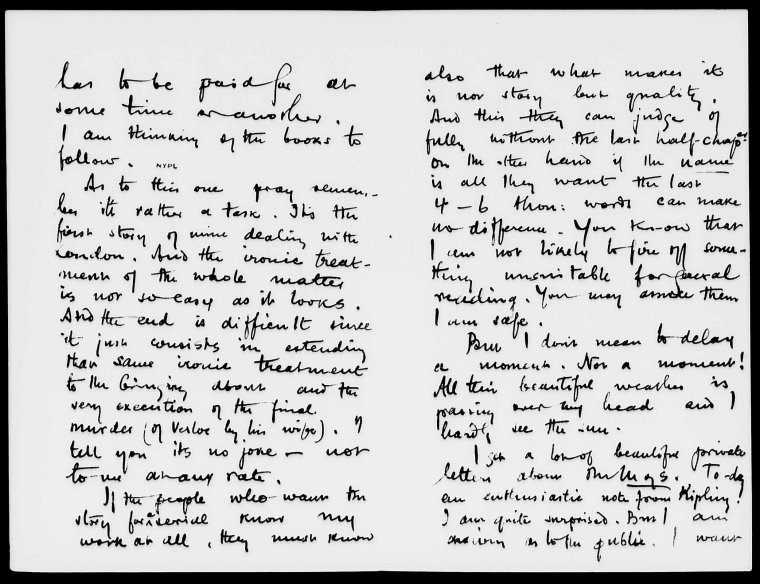 has to be paid for at
some time or another.
I am thinking of the books to
follow. NYPL
As to this one pray remem-
ber it's rather a task. It's the
first story of mine dealing with
London. And the ironic treat-
ment of the whole matter
is not so easy as it looks.
And the end is difficult since
it just consists in extending
that same ironic treatment
to the bringing about and the
very execution of the final
murder (of Verloc by his wife). I
tell you its no joke – not
to me at any rate.
If the people who want the
story for serial know my
work at all, they must know
also that what makes it
is not story but quality.
And this they can judge of
fully without the last half-chapr
on the other hand if the name
is all they want the last
4 – 6 thou: words can make
no difference. You know that
I am not likely to fire off some-
thing unsuitable for general
reading. You may assure them
I am safe.
But I don't mean to delay
a moment. Not a moment!
All this beautiful weather is
passing over my head and I
hardly see the sun.
I get a lot of beautiful private
letters about the M of S. To-day
an enthusiastic note from Kipling!
I am quite surprised. But I am
anxious as to the public. I want